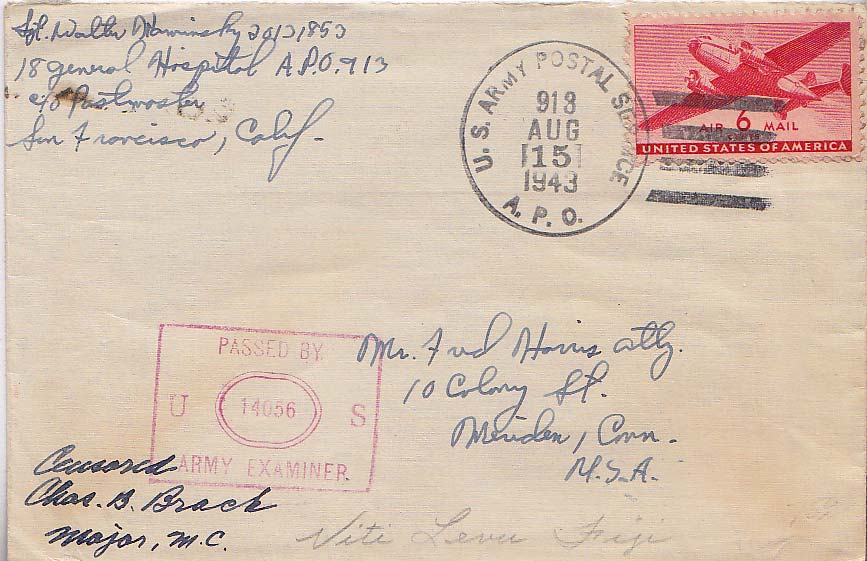 Sgt. Walter Nawinsky 20131853
18 General Hospital A.P.O. 913
c/o Postmaster
San Francisco, Calif.
U.S. ARMY POSTAL SERVICE
913
AUG
15
1943
A.P.O.
AIR 6 MAIL
UNITED STATES OF AMERICA
PASSED BY
U 14056 S
ARMY EXAMINER
Mr. Fred Harris Atty.
10 Colony St.
Meriden, Conn.
U.S.A.
Censored
Chas. B. Brack
Major, M.C.
Viti Levu Fiji